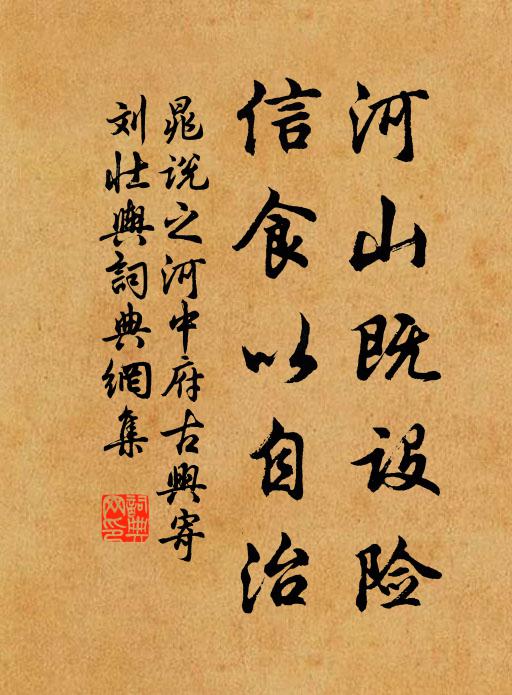 河山既设险
信食以自治
晁说之河中府古興寄
刘壮輿詞典網集
詞典網印